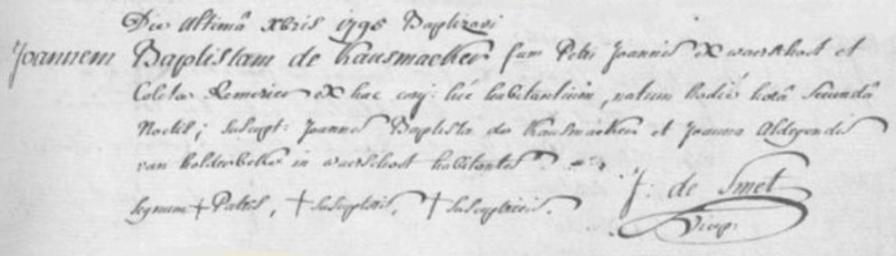 Die ultimâ Xbris 1795 Baptizavi
Joannem Baptistam de Kausmaecker fium Petri Joannis ex waerschoot et
Coletae Romerien ex hac conj: hic habitantium, natum hodie horâ secundâ
Noctis; suscept: Joannes Baptista de Kausmaecker et Joanna Aldegondis
van holderbeke in waerschoot habitantes
signum + Patris, + susceptoris, + susceptricis.
J: de Smet